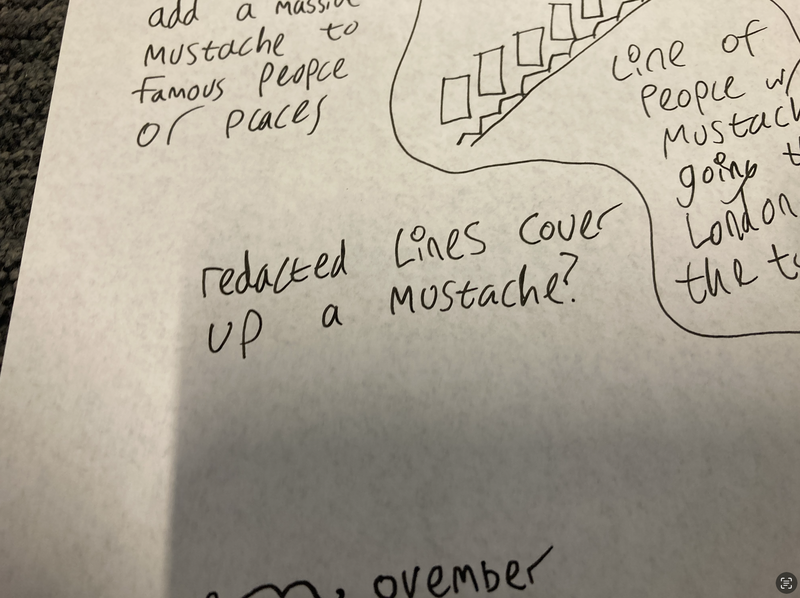 add a massive
mustache to
famous people
or places
Line of
people w/
going
London
the
redacted lines cover
up a mustache?
ovember